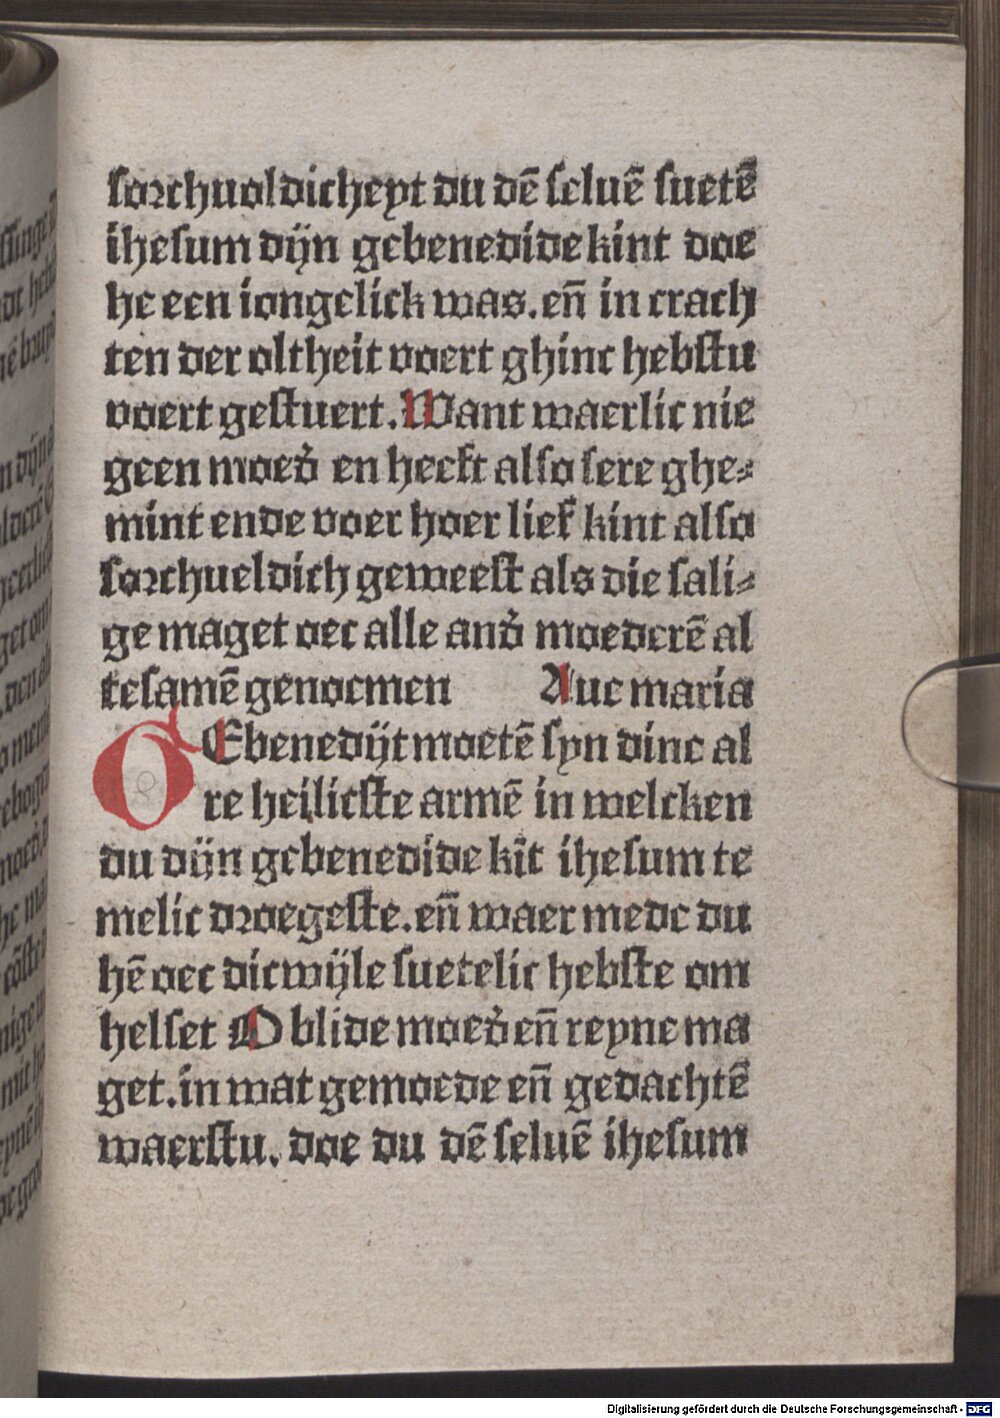 sorchuoldicheyt du dē seluē suetē
ihesum dijn gebenedide kint doe
he een iongelick was. en̄ in crach
ten der oltheit voert ghinc hebstu
voert gestuert. Want waerlic nie
geen moed̕ en heeft also sere ghe⸗
mint ende voer hoer lief kint also
sorchueldich geweest als die sali⸗
ge maget oec alle and̕ moederē al
tesamē genoemen Aue maria
GEbenedijt moetē syn dine al
re heilicste armē in welcken
du dijn gebenedide kīt ihesum te
melic droegeste. en̄ waer mede du
hē oec dicwijle suetelic hebste om
helset O blide moed̕ en̄ reyne ma
get. in wat gemoede en̄ gedachtē
waerstu. doe du dē seluē ihesum
Digitalisierung gefördert durch die Deutsche Forschungsgemeinschaft - DFG